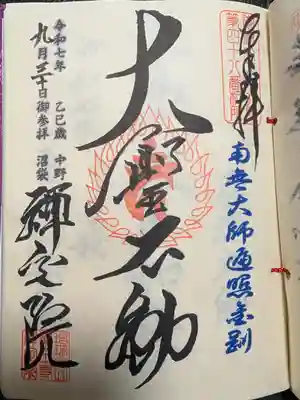 奉拝
第四十八番
南無大師遍照金剛
大聖不動
令和七年 乙巳歳 中野
九月三十日御参拝 沼袋
禪定院